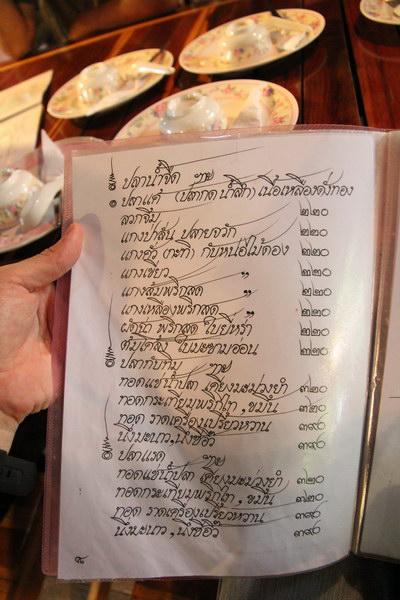 ปลาน้ำจืด
ปลาแค้ (ปลากดน้ำลึก) เนื้อเหลืองดั่งทอง
ลวกจิ้ม ๒๒๐
แกงป่าส้น ปลายจวัก ๒๒๐
แกงคั่ว (กะทิ) กับหน่อไม้ดอง ๒๒๐
แกงเขียว " ๒๒๐
แกงส้มพริกสด " ๒๒๐
แกงเหลืองพริกสด " ๒๒๐
ผัดฉ่า พริกสด ใบยี่หร่า ๒๒๐
ต้มโคล้ง ใบมะขามอ่อน ๒๒๐
ปลาทับทิม
ทอดแช่น้ำปลา เคียงมะม่วงยำ ๓๒๐
ทอดกระเทียมพริกไท , ขมิ้น ๓๒๐
ทอด ราดเครื่องเปรี้ยวหวาน ๓๙๐
นึ่งมะนาว , นึ่งซีอิ๊ว ๓๙๐
ปลาแรด
ทอดแช่น้ำปลา เคียงมะม่วงยำ ๓๒๐
ทอดกระเทียมพริกไท , ขมิ้น ๓๒๐
ทอด ราดเครื่องเปรี้ยวหวาน ๓๙๐
นึ่งมะนาว , นึ่งซีอิ๊ว ๓๙๐
๘